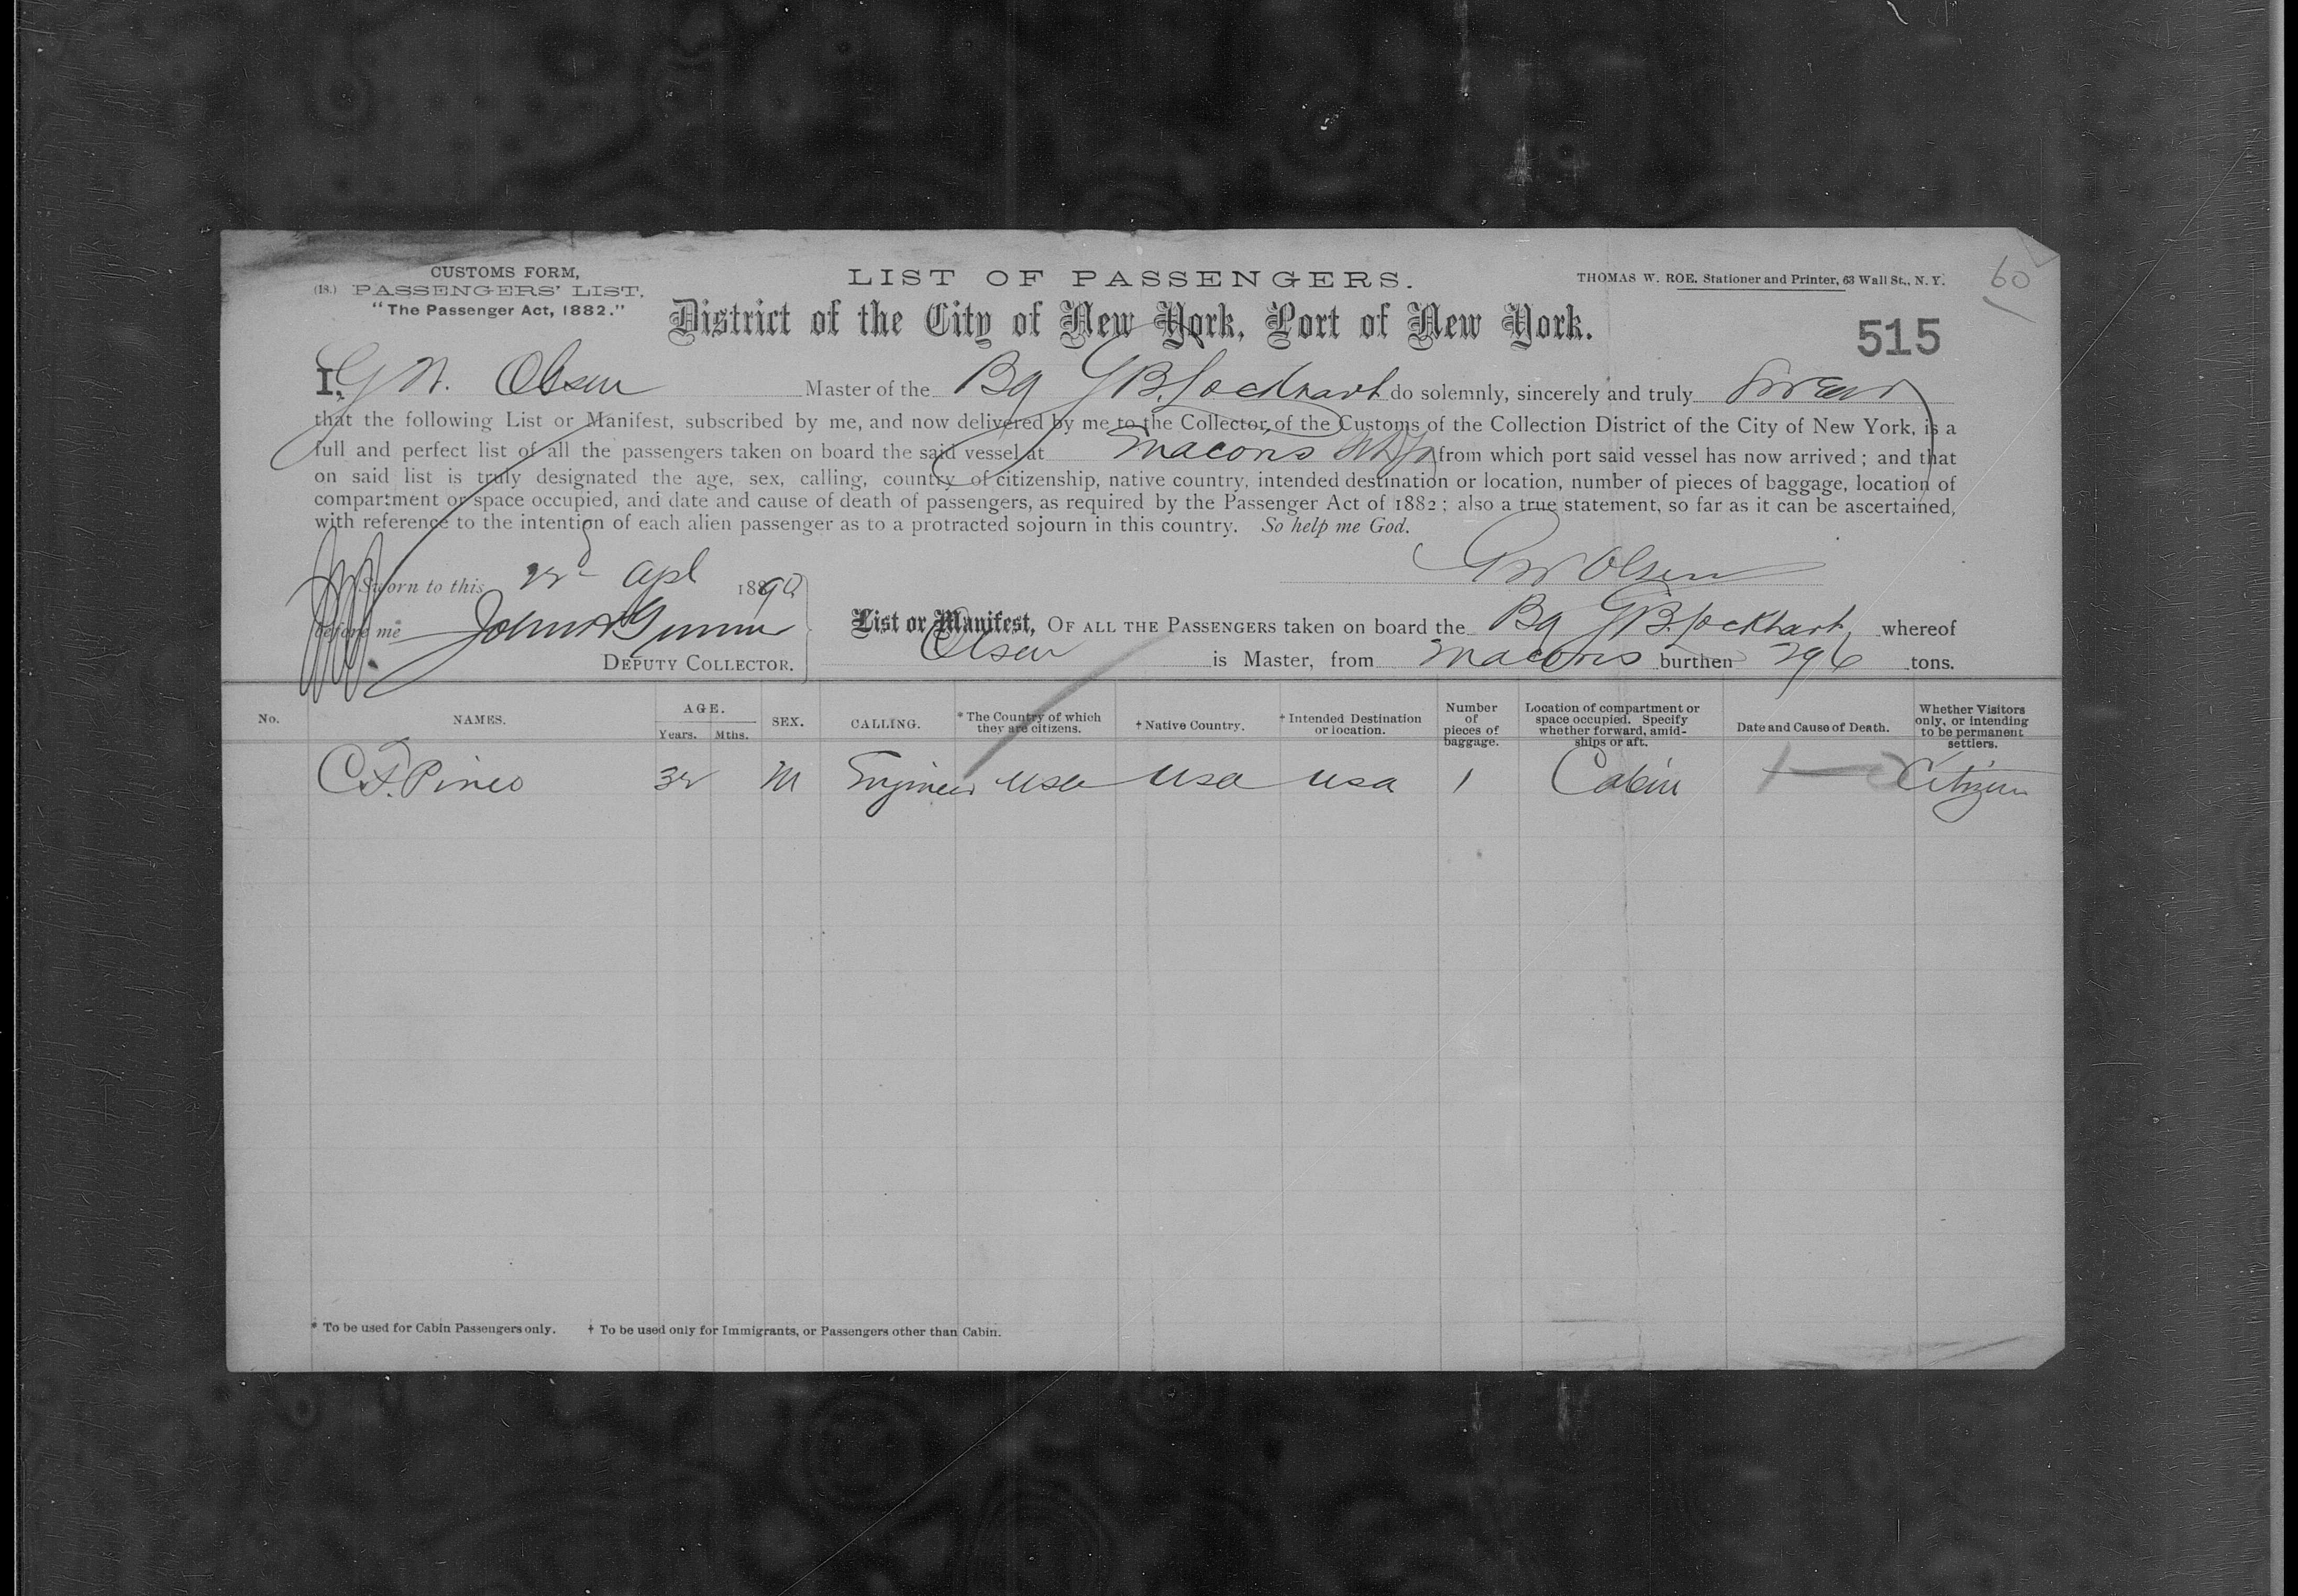 CUSTOMS FORM,
(18.) PASSENGERS' LIST.
"The Passenger Act, 1882."
LIST OF PASSENGERS.
THOMAS W. ROE. Stationer and Printer, 63 Wall St., N. Y.
60
District of the City of New York, Port of New York.
515
I, G W. Olsen Master of the Bg G B. Lockhart do solemnly, sincerely and truly swear
that the following List or Manifest, subscribed by me, and now delivered by me to the Collector of the Customs of the Collection District of the City of New York, is a
full and perfect list of all the passengers taken on board the said vessel at Macoris from which port said vessel has now arrived; and that
on said list is truly designated the age, sex, calling, country of citizenship, native country, intended destination or location, number of pieces of baggage, location of
compartment or space occupied, and date and cause of death of passengers, as required by the Passenger Act of 1882; also a true statement, so far as it can be ascertained,
with reference to the intention of each alien passenger as to a protracted sojourn in this country. So help me God.
Sworn to this 22 Apl 1890
G W Olsen
before me John
DEPUTY COLLECTOR.
List or Manifest, OF ALL THE PASSENGERS taken on board the Bg G B. Lockhart whereof
Olsen is Master, from Macoris burthen 296 tons.
No. NAMES. AGE. Years. Mths. SEX. CALLING. * The Country of which they are citizens. † Native Country. † Intended Destination or location. Number of pieces of baggage. Location of compartment or space occupied. Specify whether forward, amidships or aft. Date and Cause of Death. Whether Visitors only, or intending to be permanent settlers.
C. F. Pineo 32 M Engineer usa usa usa 1 Cabin Citizen
* To be used for Cabin Passengers only. † To be used only for Immigrants, or Passengers other than Cabin.